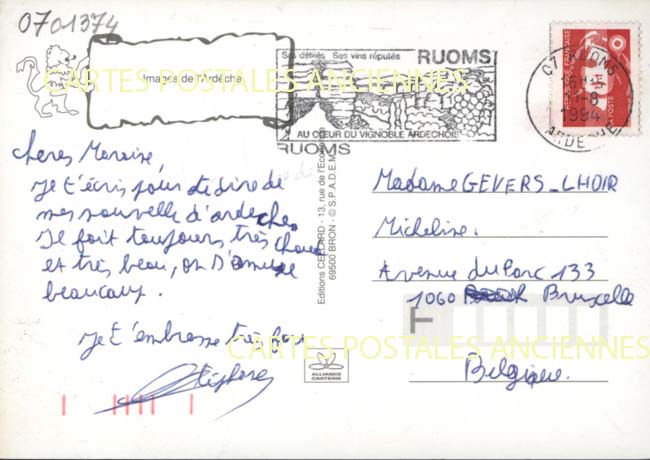 0701374
Images de l'Ardèche
CARTES POSTALES ANCIENNES
Ses défilés Ses vins réputés
RUOMS
AU CŒUR DU VIGNOBLE ARDECHOIS
RUOMS
07 RUOMS
1-8
1994
ARDECHE
REPUBLIQUE FRANÇAISE
LA POSTE
Je t'écris pour te dire de
mes nouvelle d'ardeche.
Je fait toujours très chaud
et très beau, on s'amuse
beaucoup.
Je t'embrasse très fort
Stéphane
Editions CELLARD - 13, rue de l'Ecole
69500 BRON - © S.P.A.D.E.M.
Madame GEVERS_LHOIR
Micheline.
Avenue du Parc 133
1060 Bruxelle
Belgique.
CARTES POSTALES ANCIENNES
ALLIANCE
CARTERIE